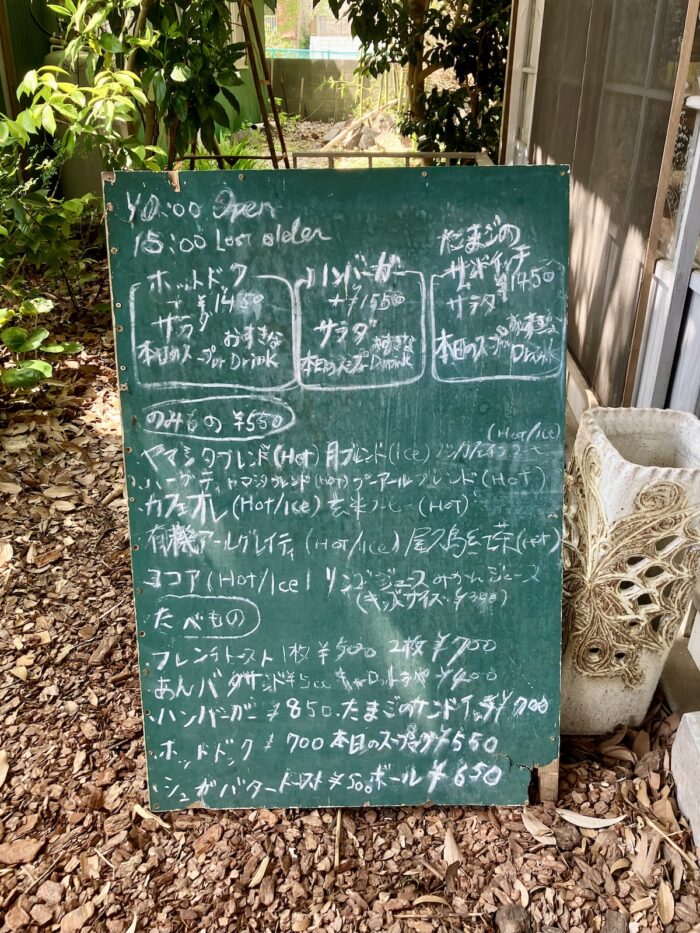 10:00 Open
15:00 Last older
ホットドック
+ ¥1450
サラダ
おすきな
本日のスープ or Drink
ハンバーガー
+ ¥1550
サラダ
おすきな
本日のスープ or Drink
たまごの
サンドイッチ
¥1450
サラダ
おすきな
本日のスープ Drink
のみもの ¥550
(Hot/Ice)
ヤマシタブレンド(Hot) 月ブレンド(Ice)
ハーブティ ブレンド (HOT)
カフェオレ (Hot/Ice) 玄米コーヒー (HOT)
有機アールグレイティ (HOT/Ice) 屋久島紅茶(Hot)
ココア(Hot/Ice) リンゴジュース みかんジュース
(キッズサイズ ¥350)
たべもの
フレンチトースト 1枚 ¥500 2枚 ¥700
あんバタサンド ¥500 キャロットラペ ¥400
ハンバーガー ¥850. たまごのサンドイッチ ¥700
ホットドック ¥700 本日のスープ ¥550
シュガバタートースト ¥500 ボール ¥650